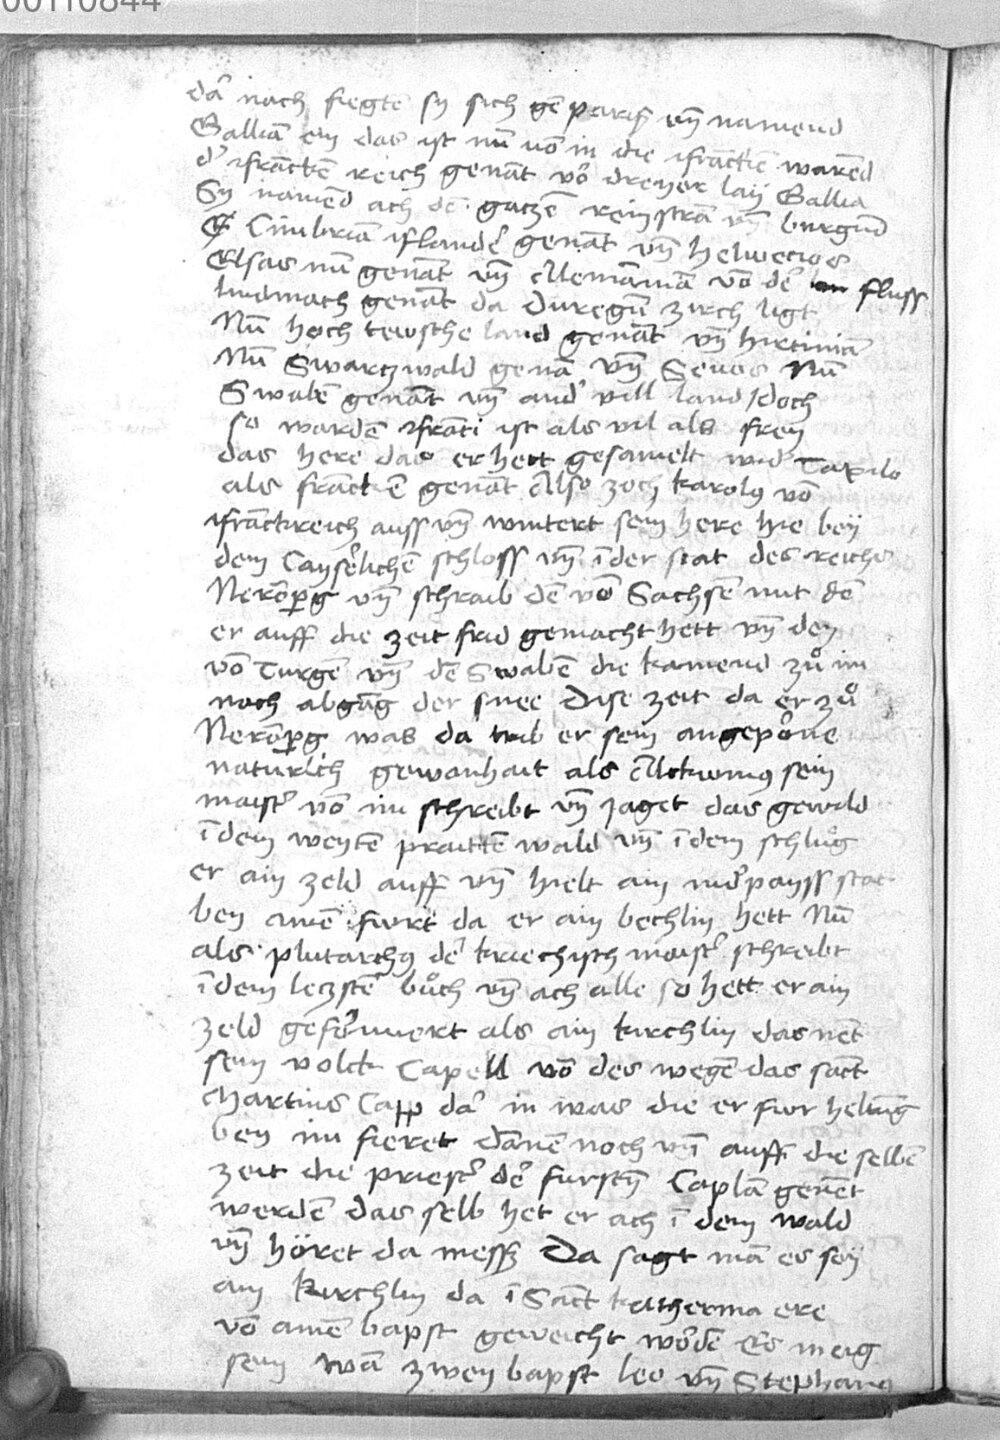 00110844
dar nach fiegtē sy sich gē pariß vn̄ namend
Galliā ein das ist nū vō in die ifrāckē warēd
d' ifrāckē reich genāt vō dreyer laij Gallia
Sy namēd ach dē gatzē reinstrā vn̄ burgūd
Cimbriā iflander genāt vn̄ helwecios
Elsas nū genāt vn̄ Alemāniā vō der fluss
lindmach genāt da Duregū zurch ligt
Nū hoch tewsche land genāt vn̄ hirciniā
Nū Swartzwald genā vn̄ Seuos Nū
Swabē genāt vn̄ and' vill land / doch
so wardē ifrāci ist als vil als frey
das here das er hett gesamelt wid' Taxilo
als franckē genāt Also zoch karolus vō
ifrāckreich auss vn̄ wintert sein here hie bey
dem Cayserlichē schloss vn̄ ī der stat des reichs
Nerōperg vn̄ schraib dē vō Sachsē mit dē
er auff die zeit frid gemacht hett vn̄ den
vō Turgē vn̄ dē Swabē die kamend zů im
noch abgāg der snee Dise zeit da er zů
Nerōperg was da trib er sein angeporne
naturlich gewonhait als Alcwinus sein
maister vō im schreibt vn̄ jaget das gewild
ī dem weytē praittē wald vn̄ ī dem schlůg
er ain zeld auff vn̄ hielt ain stat
bey ainē furt da er ain bechlin hett Nū
als plutarchus der kriechisch maister schreibt
ī dem leczstē bůch vn̄ ach alle so hett er ain
zeld geformiert als ain kirchlin das nēt
sein volck Capell vō des wegē das sāct
Martins Capp dar in was die er fur heltūg
bey im fieret dānē noch vn̄ auff die selbē
zeit die priester der furstn̄ Caplā genēt
werdē das selb het er ach ī dem wald
vn̄ höret da mess Da sagt mā es sey
ain kirchlin da ī Sāct katherina ere
vō ainē bapst geweicht wordē Es mag
sein wā zwen bapst leo vn̄ Stephanus